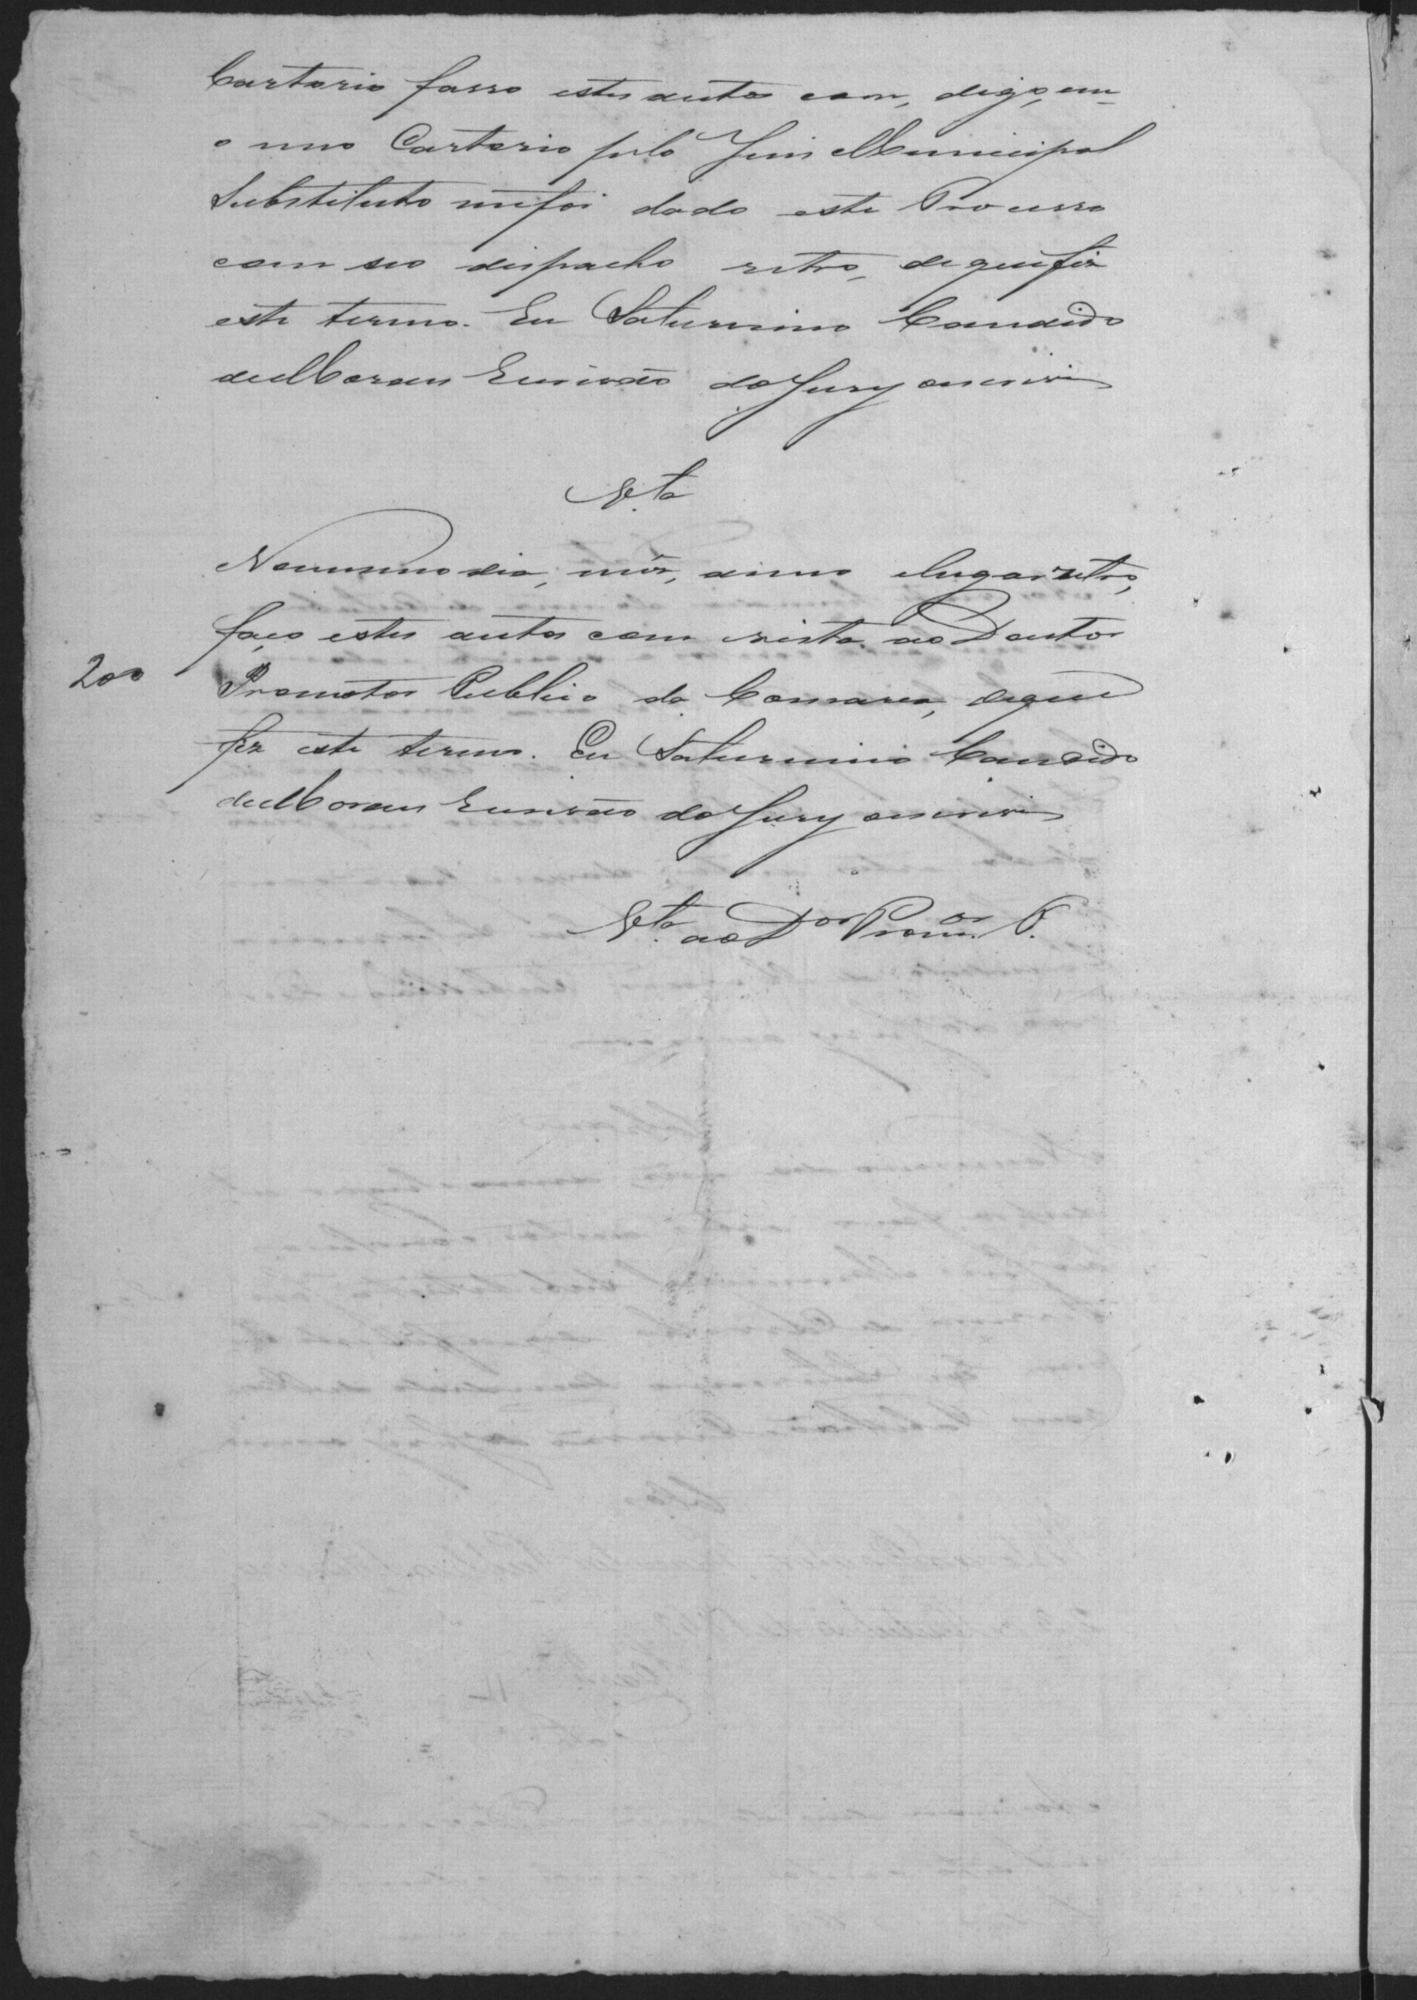 Cartorio fasso estes autos com, digo, em
o meo Cartorio pelo Juis Municipal
Substituto me foi dado este Processo
com seo dispacho retro, de que fiz
este termo. Eu Saturnino Candido
de Moraes Escrivão do Jury escrevi
V.ta
No mesmo dia, mês, anno e lugar retro,
faço estes autos com vista ao Doutor
200
Promotor Publico da Comarca, de que
fiz este termo. Eu Saturnino Candido
de Moraes Escrivão do Jury escrevi
V.ta ao D.or Prom.or P.